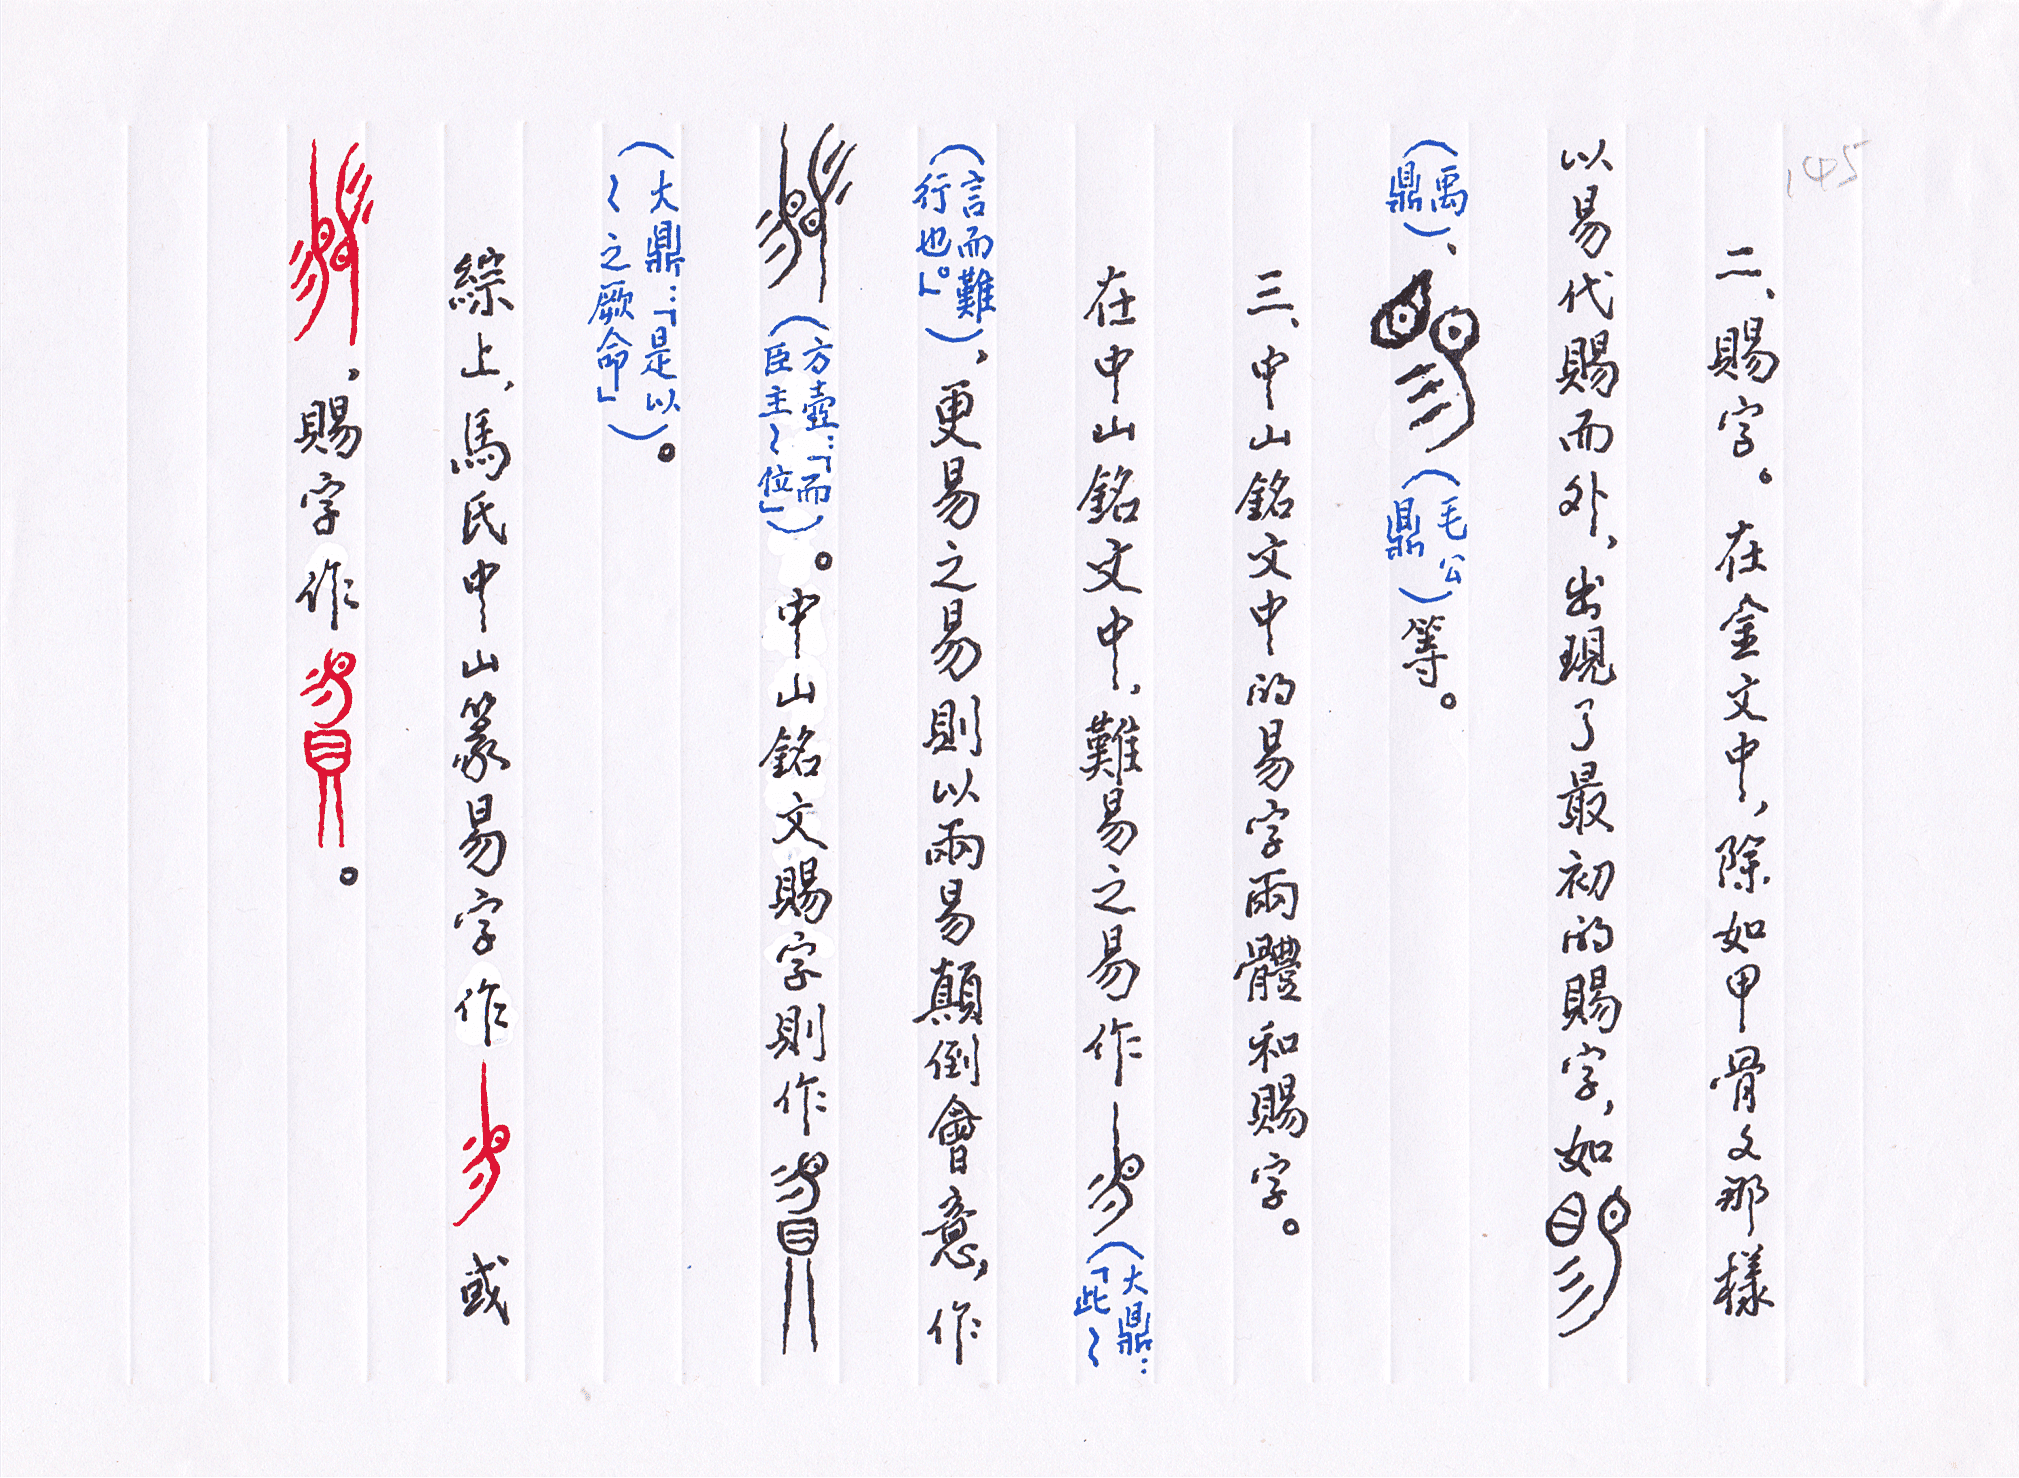 145
二、賜字。在金文中，除如甲骨文那樣
以易代賜而外，出現了最初的賜字，如
（禹鼎）、（毛公鼎）等。
三、中山銘文中的易字兩體和賜字。
在中山銘文中，難易之易作（大鼎：「此〻
言而難行也。」），更易之易則以兩易顛倒會意，作
（方壺：「而臣主〻位」）。中山銘文賜字則作
（大鼎：「是以〻之厥命」）。
綜上，馬氏中山篆易字作或
，賜字作。